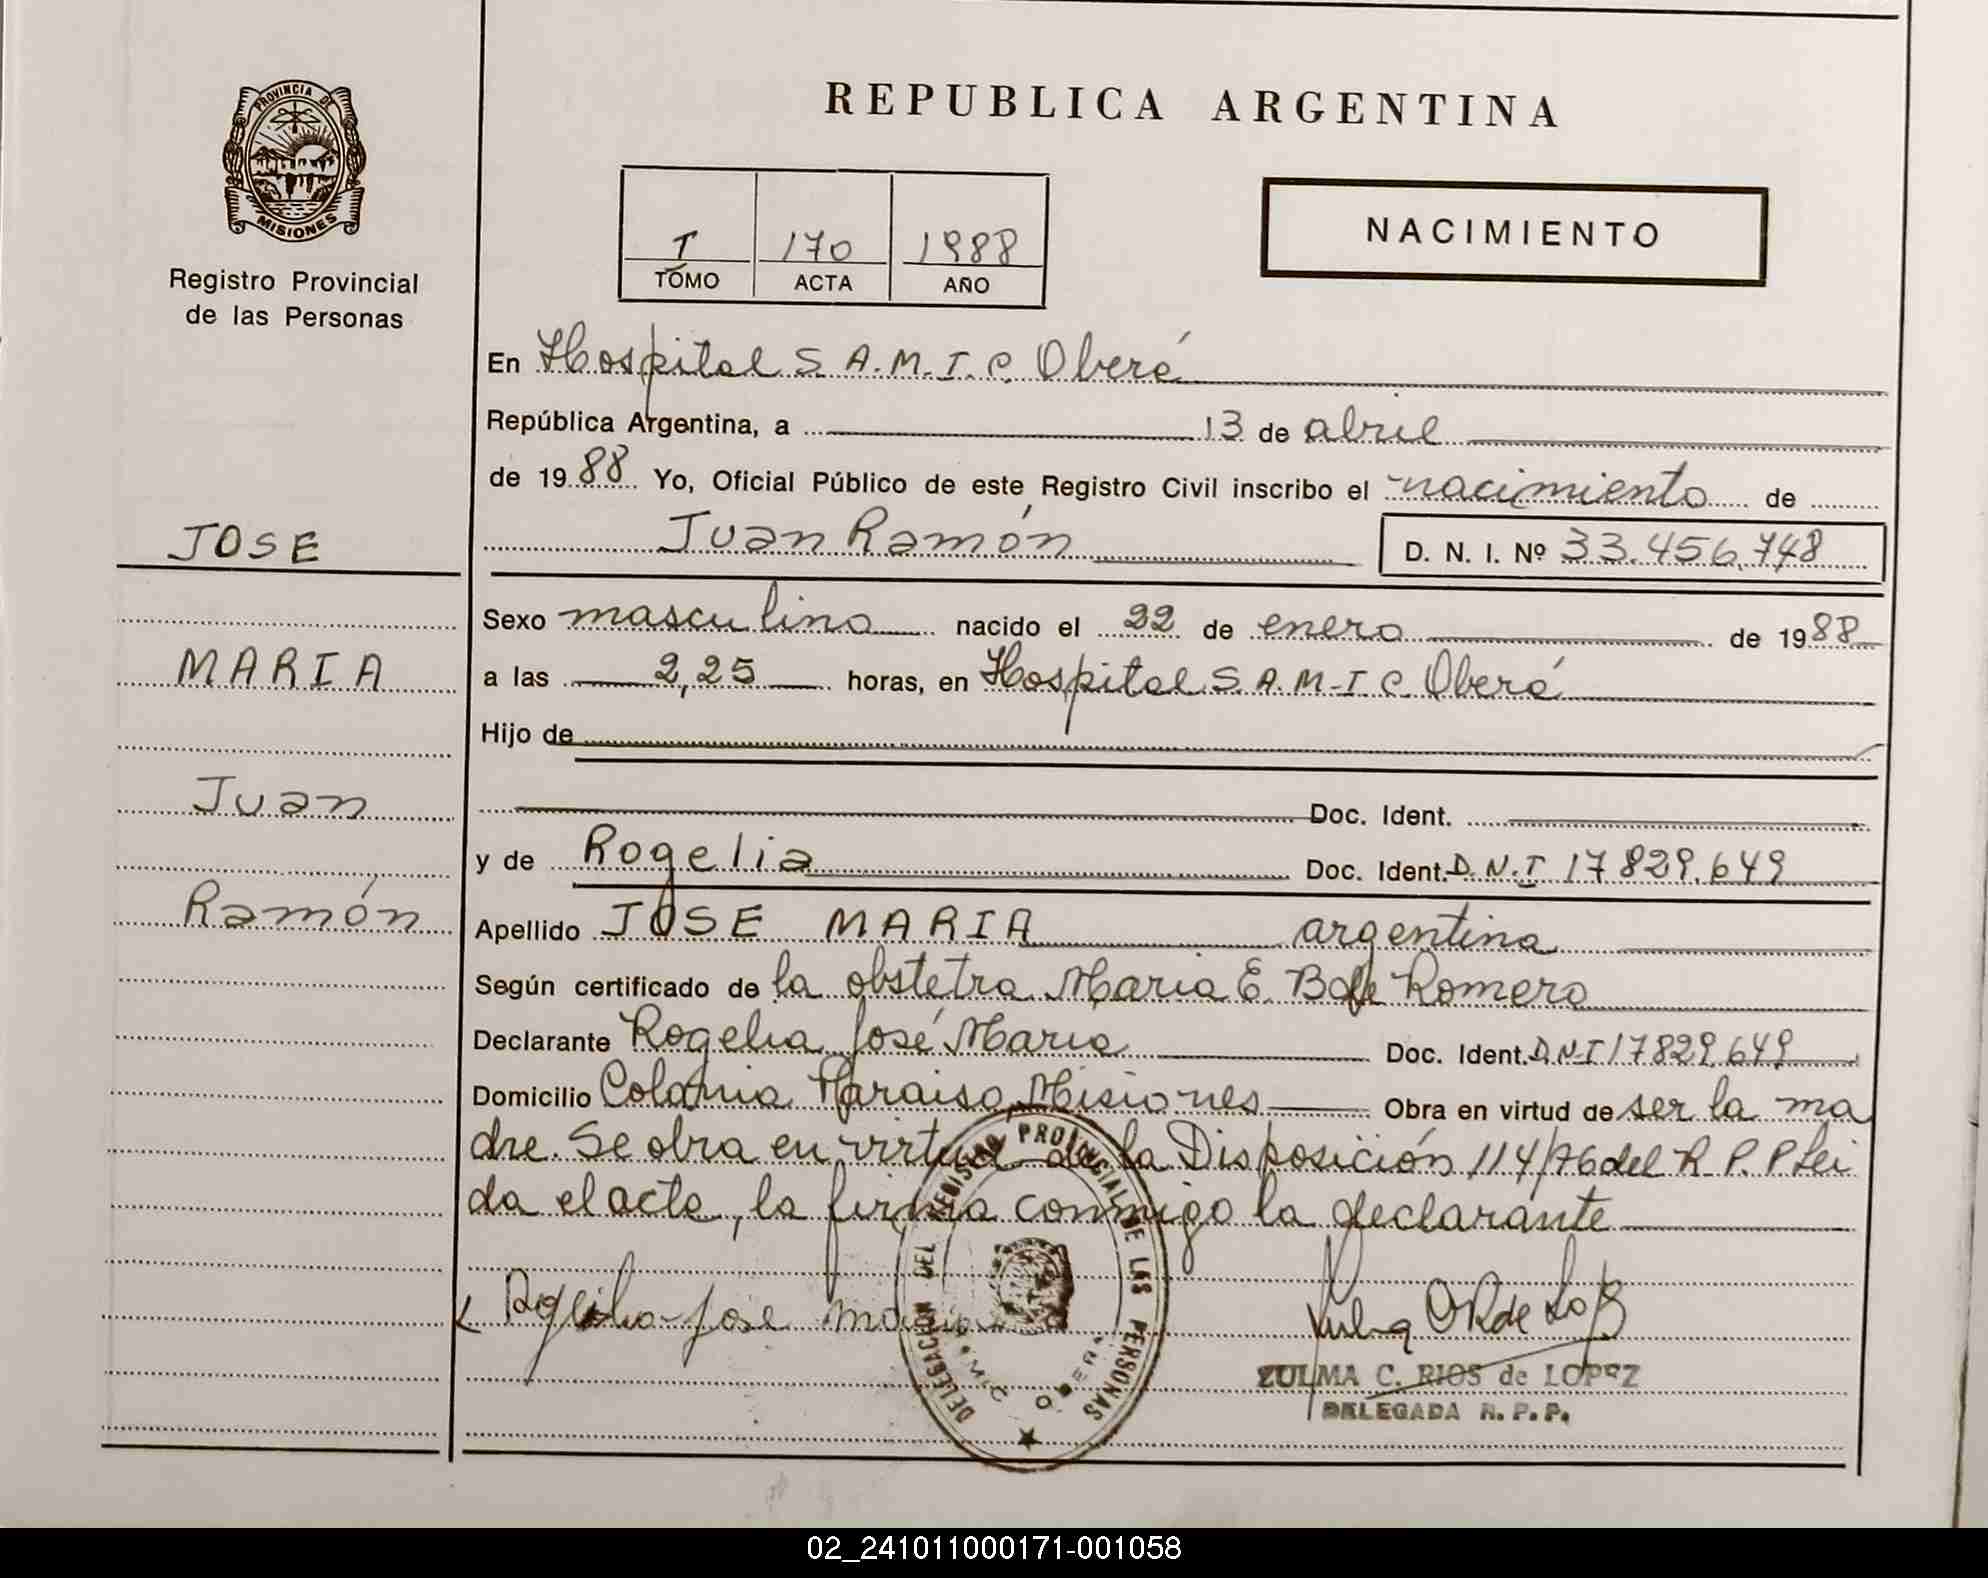 PROVINCIA DE
MISIONES
Registro Provincial
de las Personas
REPUBLICA ARGENTINA
I 170 1988
TOMO ACTA AÑO
NACIMIENTO
En Hospital S.A.M.I.C. Oberá
República Argentina, a 13 de abril
de 1988 Yo, Oficial Público de este Registro Civil inscribo el nacimiento de
Juan Ramón D. N. I. Nº 33.456.748
Sexo masculino nacido el 22 de enero de 1988
a las 2,25 horas, en Hospital S.A.M.I.C. Oberá
Hijo de
Doc. Ident.
y de Rogelia Doc. Ident. D.N.I 17829.649
Apellido JOSE MARIA argentina
Según certificado de la obstetra Maria E. B de Romero
Declarante Rogelia José Maria Doc. Ident. D.N.I 17829.649
Domicilio Colonia Paraiso Misiones Obra en virtud de ser la ma
dre. Se obra en virtud de la Disposición 114/76 del R.P.P Lei
da el acta, la firma conmigo la declarante
Rogelia Jose Maria
ZULMA C. RIOS de LOPEZ
DELEGADA R.P.P.
DELEGACION DEL REGISTRO PROVINCIAL DE LAS PERSONAS
JOSE
MARIA
Juan
Ramón
02_241011000171-001058